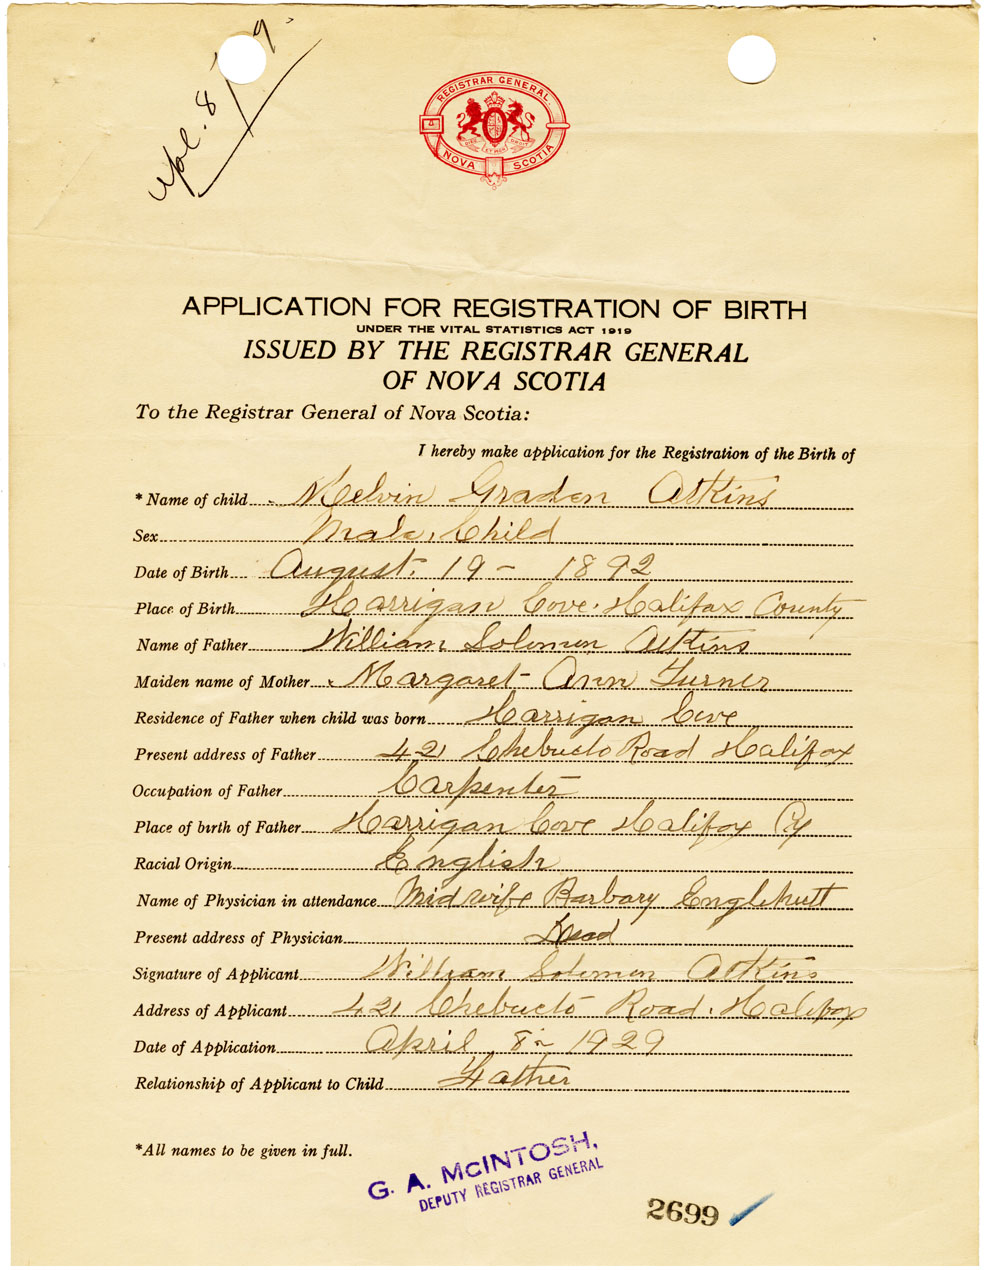 Apl. 8/29
REGISTRAR GENERAL
NOVA SCOTIA
APPLICATION FOR REGISTRATION OF BIRTH
UNDER THE VITAL STATISTICS ACT 1919
ISSUED BY THE REGISTRAR GENERAL
OF NOVA SCOTIA
To the Registrar General of Nova Scotia:
I hereby make application for the Registration of the Birth of
* Name of child Melvin Graden Atkins
Sex Male Child
Date of Birth August 19 - 1892
Place of Birth Harrigan Cove. Halifax County
Name of Father William Solomon Atkins
Maiden name of Mother Margaret Ann Turner
Residence of Father when child was born Harrigan Cove
Present address of Father 421 Chebucto Road Halifax
Occupation of Father Carpenter
Place of birth of Father Harrigan Cove Halifax Cy
Racial Origin English
Name of Physician in attendance Midwife Barbary Englehutt
Present address of Physician Dead
Signature of Applicant William Solomon Atkins
Address of Applicant 421 Chebucto Road. Halifax
Date of Application April 8th 1929
Relationship of Applicant to Child Father
*All names to be given in full.
G. A. McINTOSH,
DEPUTY REGISTRAR GENERAL
2699